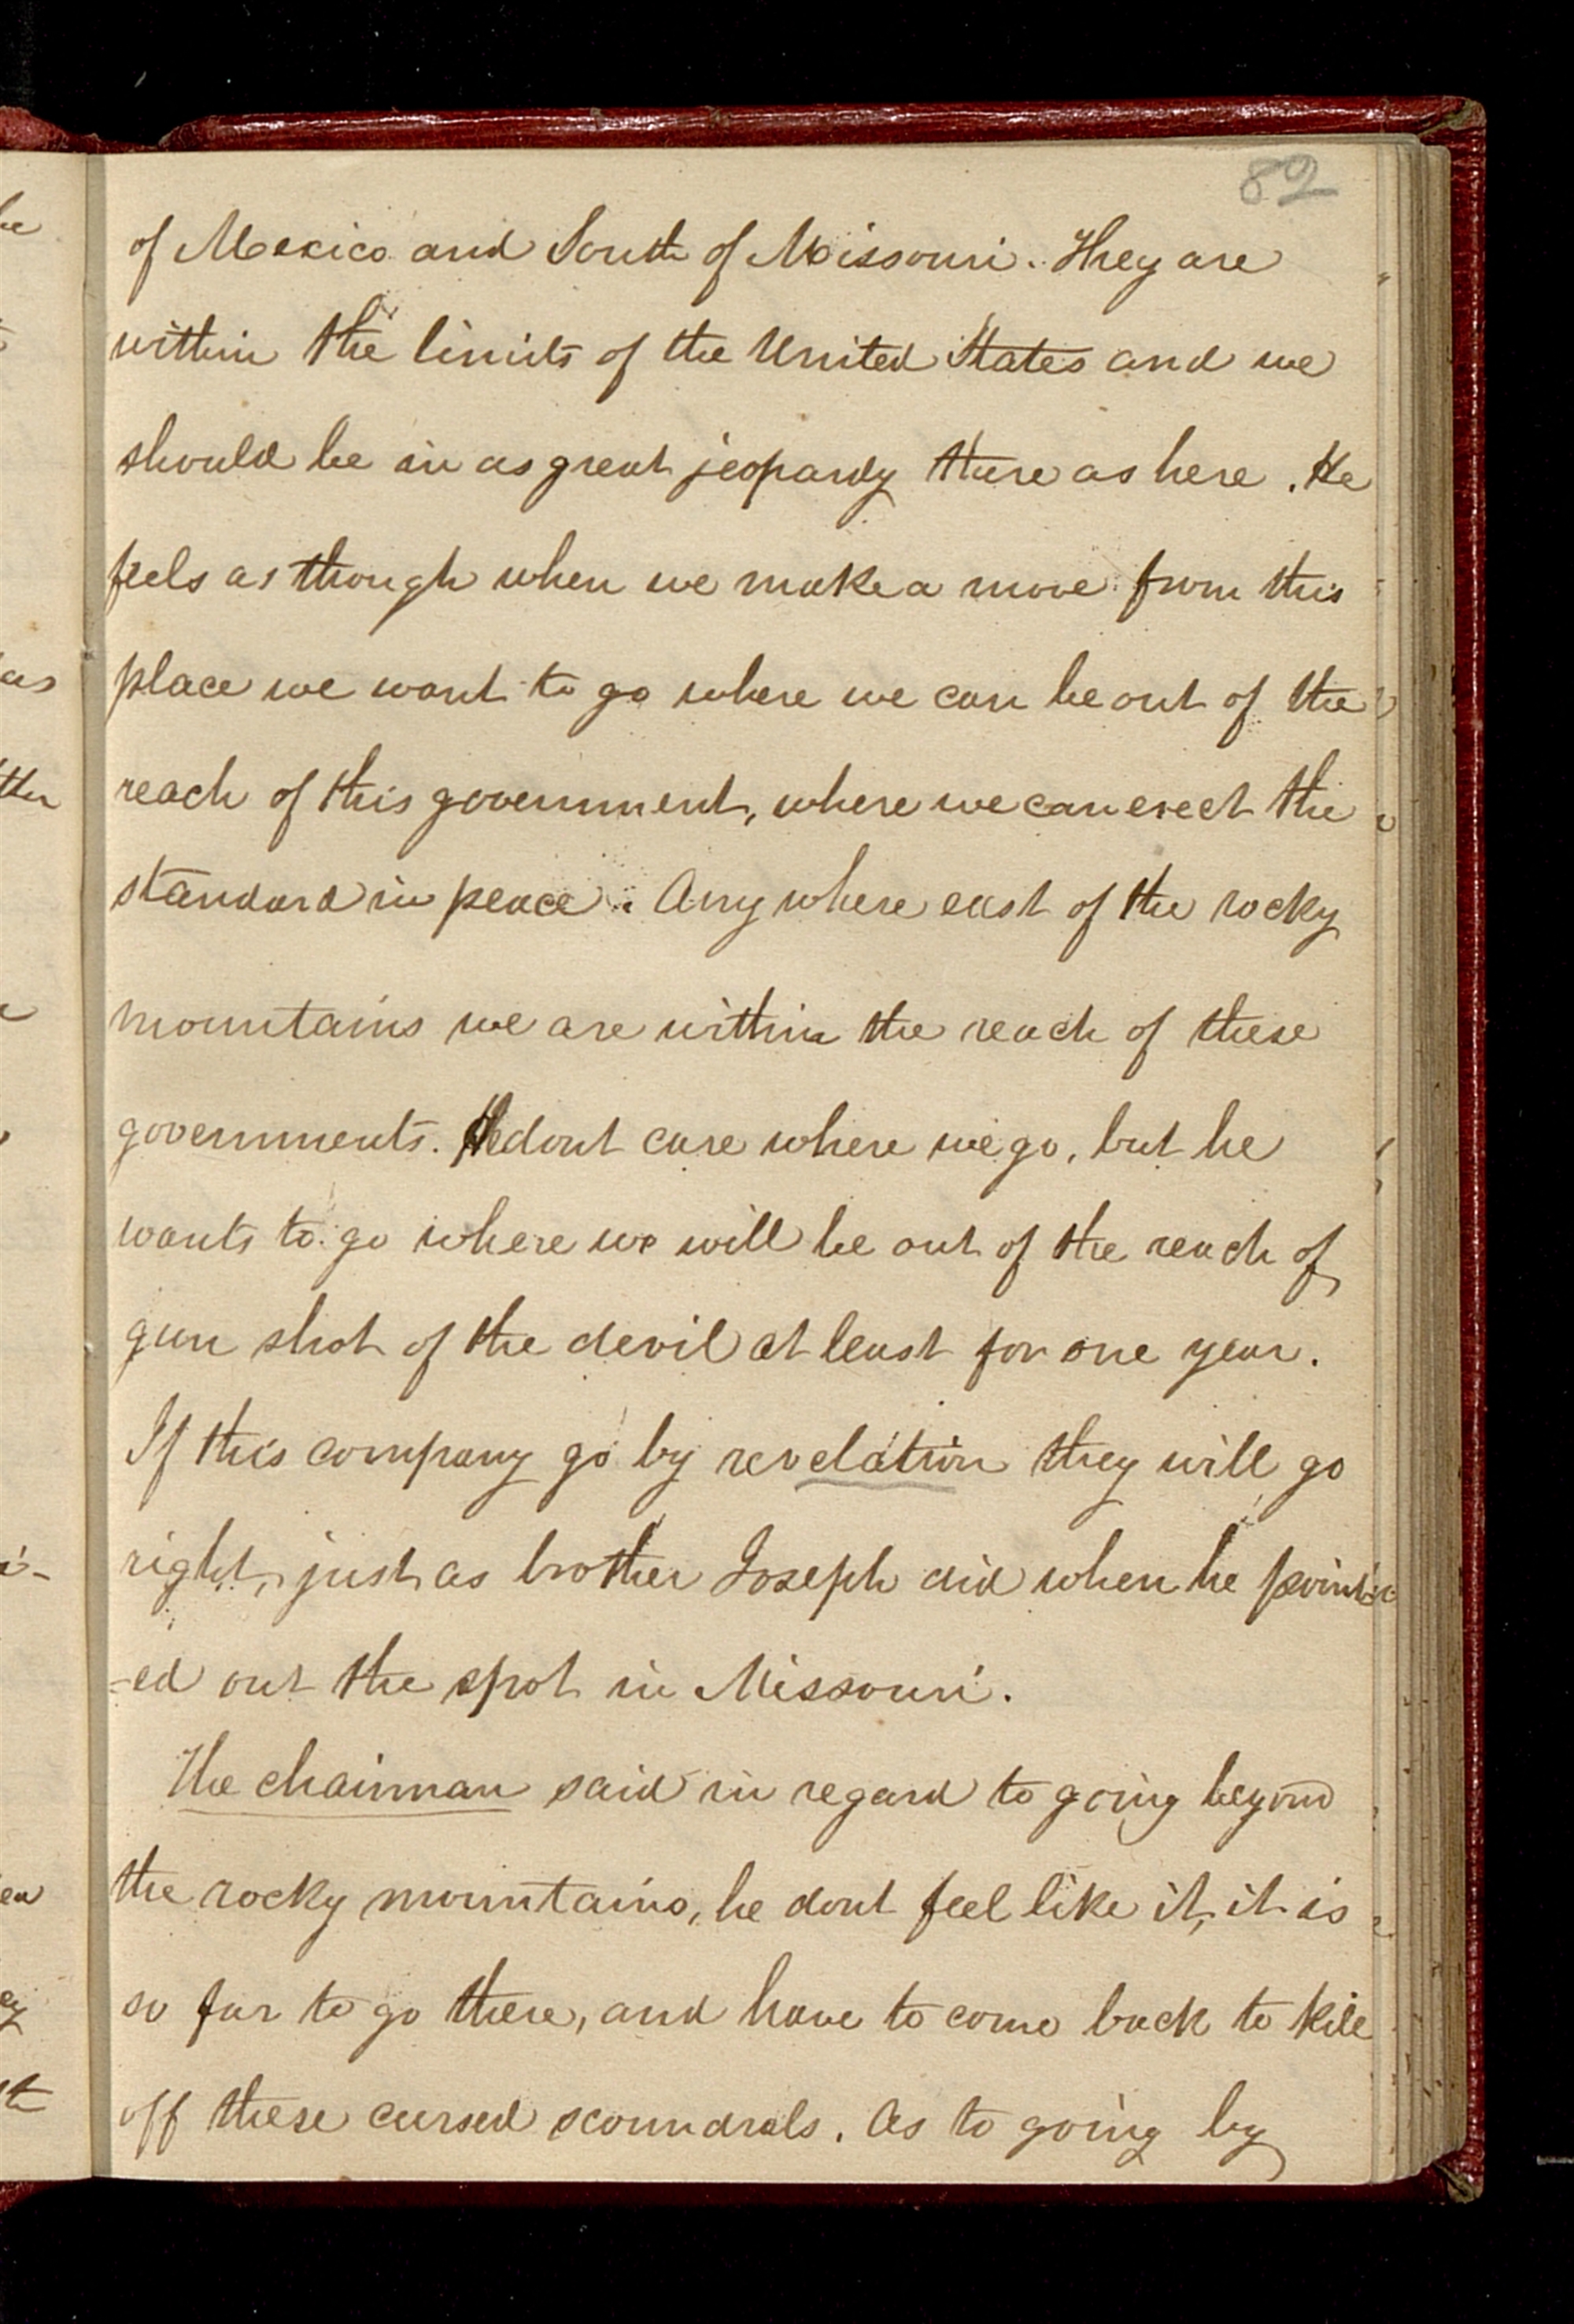 82
of Mexico and South of Missouri. They are
within the limits of the United States and we
should be in as great jeopardy there as here. He
feels as though when we make a move from this
place we want to go where we can be out of the
reach of this government, where we can erect the
standard in peace. Any where east of the rocky
mountains we are within the reach of these
governments. He dont care where we go, but he
wants to go where we will be out of the reach of
gun shot of the devil at least for one year.
If this company go by revelation they will go
right, just as brother Joseph did when he point-
=ed out the spot in Missouri.
The chairman said in regard to going beyond
the rocky mountains, he dont feel like it, it is
so far to go there, and have to come back to kill
off these cursed scoundrals. As to going by